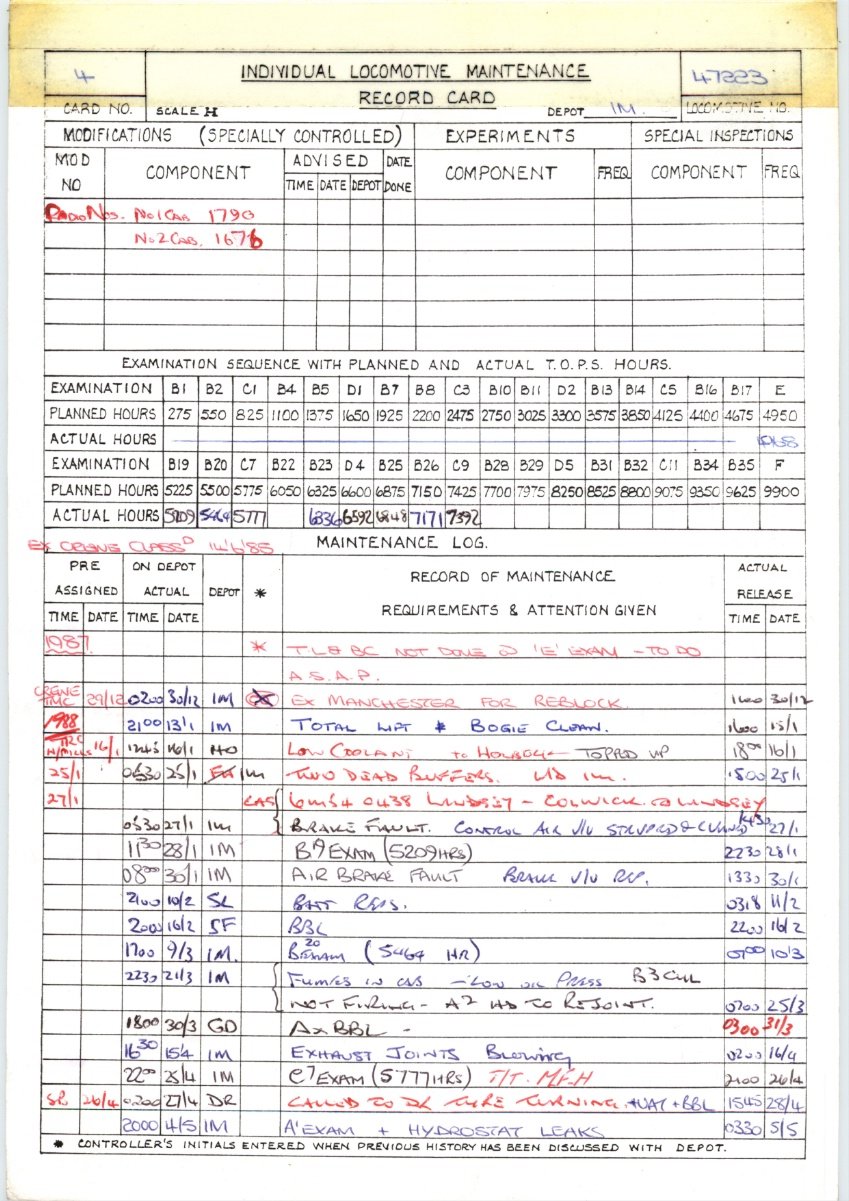 4 INDIVIDUAL LOCOMOTIVE MAINTENANCE 47223
RECORD CARD
CARD NO. SCALE H DEPOT IM. LOCOMOTIVE NO.
MODIFICATIONS (SPECIALLY CONTROLLED) EXPERIMENTS SPECIAL INSPECTIONS
MOD NO COMPONENT ADVISED DATE DONE COMPONENT FREQ COMPONENT FREQ
TIME DATE DEPOT
RADIO NOS. NO1 CAB 1790
NO2 CAB. 1676
EXAMINATION SEQUENCE WITH PLANNED AND ACTUAL T.O.P.S. HOURS.
EXAMINATION B1 B2 C1 B4 B5 D1 B7 B8 C3 B10 B11 D2 B13 B14 C5 B16 B17 E
PLANNED HOURS 275 550 825 1100 1375 1650 1925 2200 2475 2750 3025 3300 3575 3850 4125 4400 4675 4950
ACTUAL HOURS
EXAMINATION B19 B20 C7 B22 B23 D4 B25 B26 C9 B28 B29 D5 B31 B32 C11 B34 B35 F
PLANNED HOURS 5225 5500 5775 6050 6325 6600 6875 7150 7425 7700 7975 8250 8525 8800 9075 9350 9625 9900
ACTUAL HOURS 5209 5464 5777 6336 6592 6848 7171 7392
EX CREWE CLASS D 14/6/85 MAINTENANCE LOG.
PRE ASSIGNED ON DEPOT ACTUAL DEPOT * RECORD OF MAINTENANCE ACTUAL RELEASE
REQUIREMENTS & ATTENTION GIVEN
TIME DATE TIME DATE TIME DATE
1987 * TL & BC NOT DONE @ 'E' EXAM - TO DO
A.S.A.P.
CREWE TMC 29/12 0200 30/12 IM EX MANCHESTER FOR REBLOCK. 1600 30/12
1988 2100 13/1 IM TOTAL LIFT & BOGIE CLEAN. 1600 15/1
16/1 1245 16/1 HO LOW COOLANT TO HOLBECK - TOPPED UP 1800 16/1
25/1 0630 25/1 IM TWO DEAD BUFFERS. IM. 1500 25/1
27/1 CAS 6M54 0438 LINDSEY - COLWICK @ LINDSEY
0530 27/1 IM BRAKE FAULT. CONTROL AIR V/V STRIPPED & CLEANED 1430 27/1
1130 28/1 IM B19 EXAM (5209HRS) 2230 28/1
0800 30/1 IM AIR BRAKE FAULT BRAKE V/V REP. 1330 30/1
2100 10/2 SL BATT REPS. 0318 11/2
2000 16/2 SF BBL 2200 16/2
1700 9/3 IM. B20 EXAM (5464 HR) 0700 10/3
2230 21/3 IM FUMES IN CAB - LOW OIL PRESS B3 CYL
NOT FIRING - A2 HD TO REJOINT. 0700 25/3
1800 30/3 GD A x BBL - 0300 31/3
1630 15/4 IM EXHAUST JOINTS BLOWING 0200 16/4
2200 25/4 IM C7 EXAM (5777HRS) T/T. M.F.H 2100 26/4
26/4 0200 27/4 DR CALLED TO DR TYRE TURNING. + VAT + BBL 1545 28/4
2000 4/5 IM 'A' EXAM + HYDROSTAT LEAKS 0330 5/5
* CONTROLLER'S INITIALS ENTERED WHEN PREVIOUS HISTORY HAS BEEN DISCUSSED WITH DEPOT.